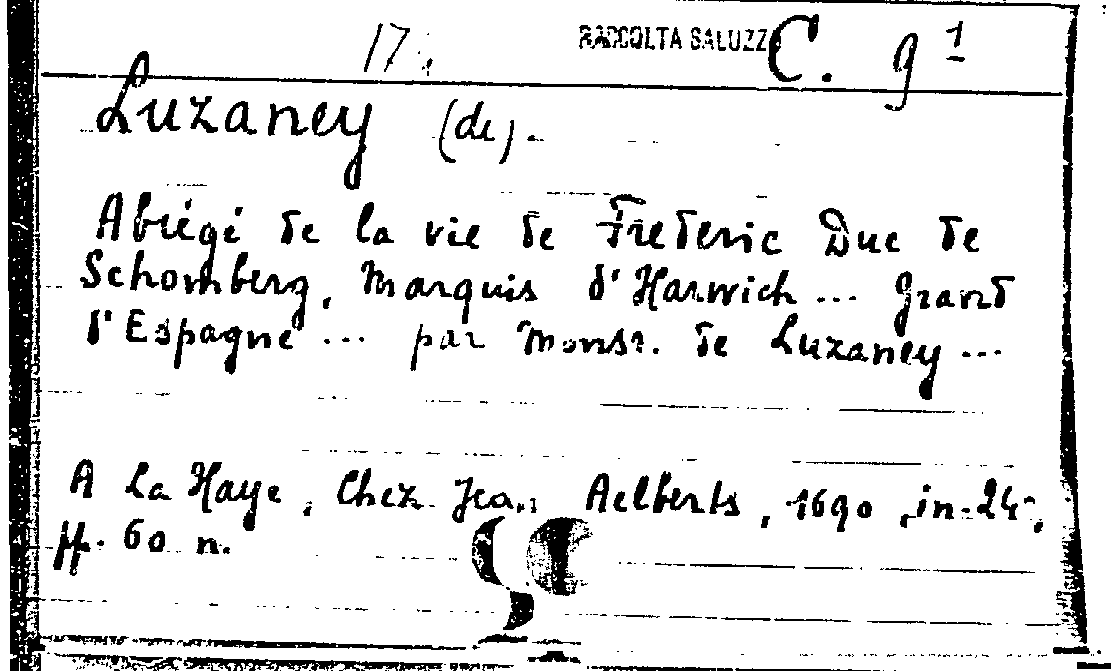 17. RACCOLTA SALUZZO C. 9¹
Luzaney (de).
Abrégé de la vie de Frederic Duc de
Schomberg, Marquis d'Harwich ... grand
d'Espagne ... par Monsr. de Luzaney ...
A La Haye, Chez Jean Aelberts, 1690, in-24°,
pp. 60 n.